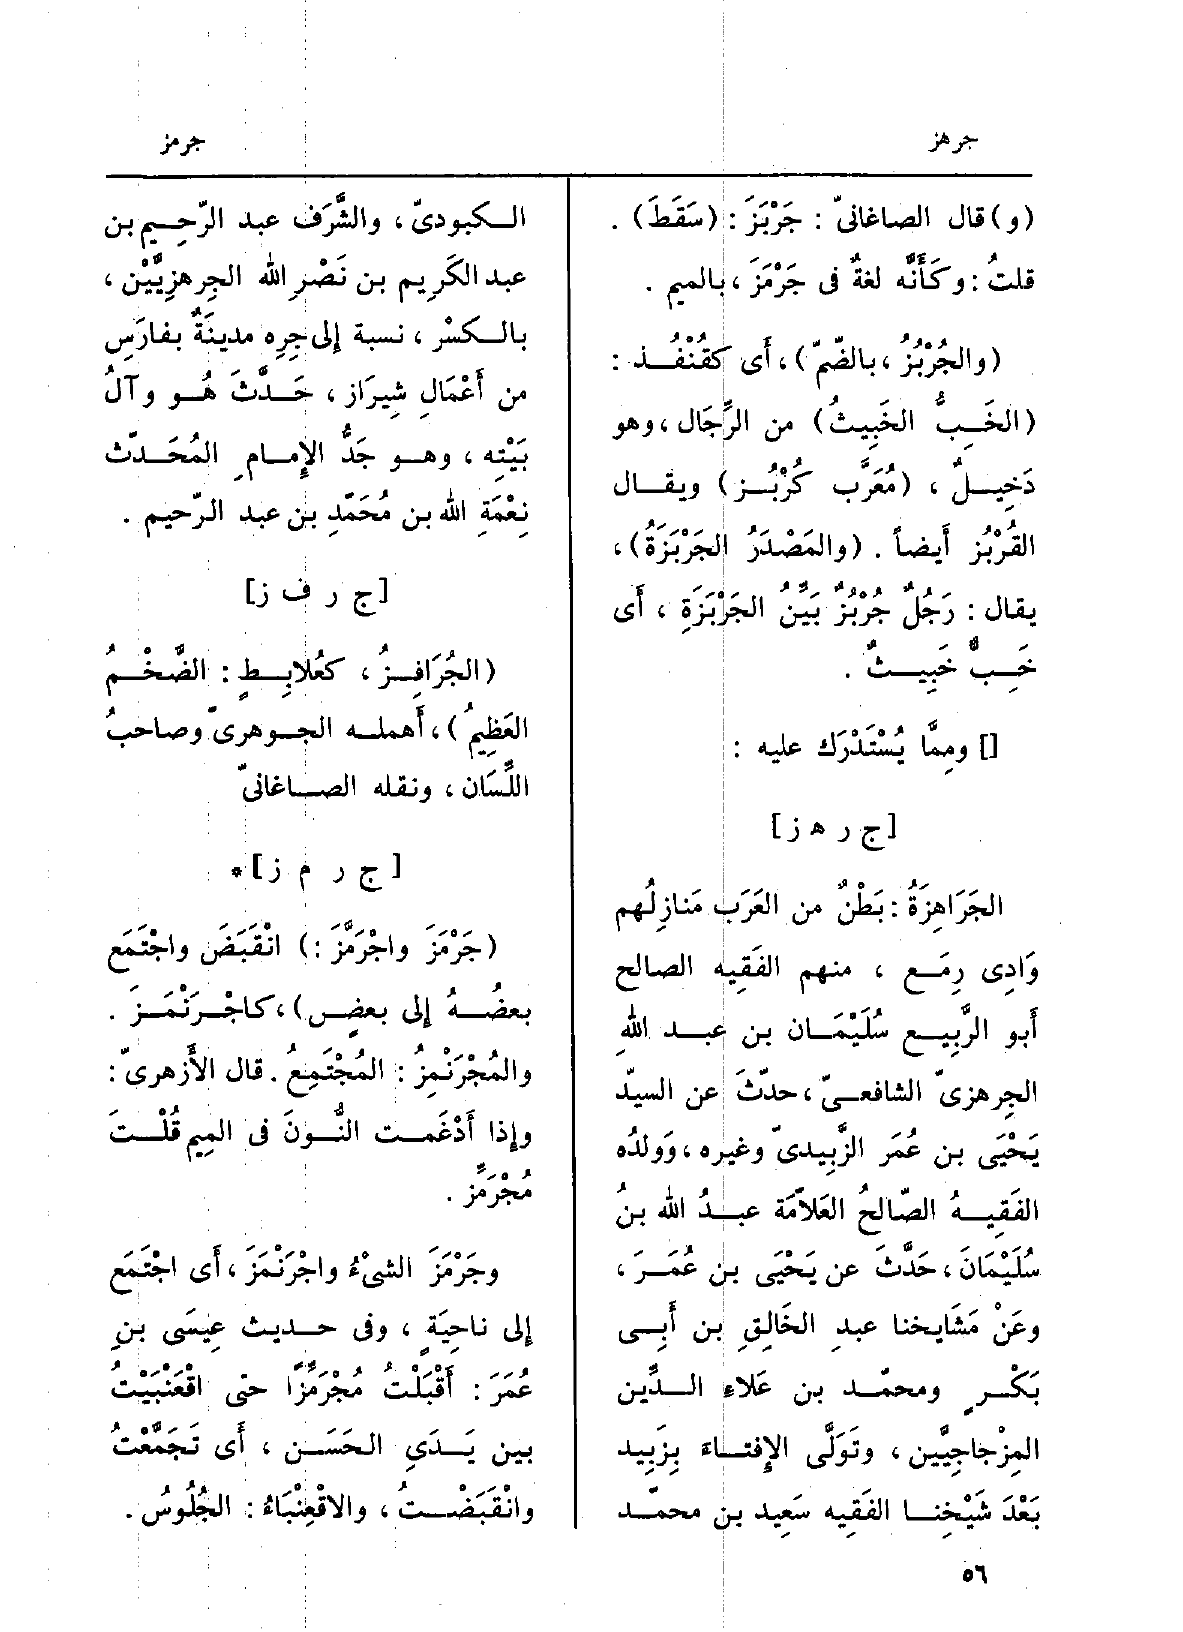 جرهز
جرمز
(و) قال الصاغانىّ : جَرْبَزَ : (سَقَطَ) .
قلتُ : وكَأَنَّه لغةٌ فى جَرْمَزَ ، بالميم .
(والجُرْبُزُ ، بالضّمّ) ، أَى كقُنْفُــذ :
(الخَــبُّ الخَبيثُ) من الرِّجَال ، وهو
دَخِيــلٌ ، (مُعَرَّب كُرْبُــز) ويقــال
القُرْبُز أَيضاً . (والمَصْدَرُ الجَرْبَزَةُ) ،
يقال : رَجُلٌ جُرْبُزٌ بَيِّنُ الجَرْبَزَةِ ، أَى
خَــبٌّ خَبِيــثٌ .
[] ومِمَّا يُسْتَدْرَك عليه :
[ج ر ه ز]
الجَرَاهِزَةُ : بَطْنٌ من العَرَب مَنازِلُهم
وَادِى رِمَــع ، منهم الفَقِيه الصالح
أَبو الرَّبِيــع سُلَيْمَــان بن عبــد اللهِ
الجِرهزىّ الشافعــىّ ، حدّثَ عن السيّد
يَحْيَى بن عُمَر الزَّبِيدىّ وغيره ، وَولدُه
الفَقيــهُ الصّالحُ العَلاّمَة عبــدُ الله بنُ
سُلَيْمَانَ ، حَدَّثَ عن يَحْيَى بن عُمَــرَ ،
وعَنْ مَشَايخنا عبدِ الخَالِقِ بن أَبِــى
بَكْــرٍ ومحمّــد بن عَلاءِ الــدِّين
المِزْجاجِيَّين ، وتَوَلَّى الإِفتــاءَ بِزَبِيد
بَعْدَ شَيْخِنــا الفَقيه سَعِيد بن محمّــد
الــكبودىّ ، والشَّرَف عبد الرّحِــيم بن
عبد الكَرِيم بن نَصْرِ الله الجِرهزِيَّيْن ،
بالــكسْر ، نسبة إِلى جِرِه مدينَةٌ بفارَس
من أَعْمَالِ شِيرَاز ، حَــدَّثَ هُــو وآلُ
بَيْتِه ، وهــو جَدُّ الإِمــامِ المُحَــدّث
نِعْمَةِ الله بن مُحَمّدِ بن عبد الرّحيم .
[ج ر ف ز]
(الجُرَافِــزُ ، كعُلابِــطٍ : الضَّخْــمُ
العَظِيمُ) ، أَهملــه الجــوهرىّ وصاحبُ
اللِّسَان ، ونقله الصــاغانىّ
[ج ر م ز] *
(جَرْمَزَ واجْرَمَّزَ :) انْقَبَضَ واجْتَمَع
بعضُــهُ إِلى بعضٍ) ، كاجْــرَنْمَــزَ .
والمُجْرَنْمِزُ : المُجْتَمِعُ . قال الأَزهرىّ :
وإِذا أَدْغَمــت النُّونَ فى المِيم قُلْــتَ
مُجْرَمِّز .
وجَرْمَزَ الشىْءُ واجْرَنْمَزَ ، أَى اجْتَمَع
إِلى ناحِيَةٍ ، وفى حــديث عِيسَى بنِ
عُمَرَ : أَقْبَلْتُ مُجْرَمِّزًا حتى اقْعَنْبَيْتُ
بين يَــدَىِ الحَسَــن ، أَى تَجَمَّعْتُ
وانْقَبَضْــتُ ، والاقْعِنْبَاءُ : الجُلُوسُ .
٥٦